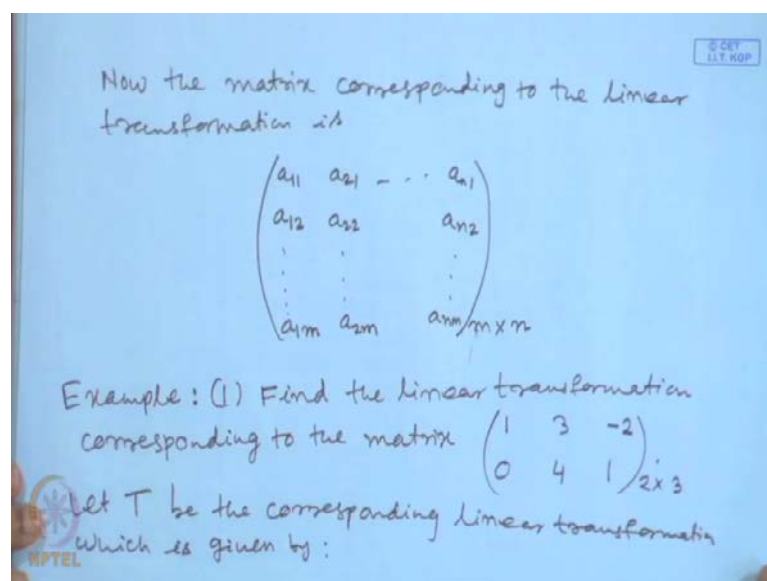 © CET
I.I.T. KGP
Now the matrix corresponding to the linear
transformation is
a11 a21 - - - an1
a12 a22 an2
a1m a2m anm m×n
Example: (1) Find the linear transformation
corresponding to the matrix (1 3 -2
0 4 1) 2×3.
Let T be the corresponding linear transformation
which is given by:
NPTEL